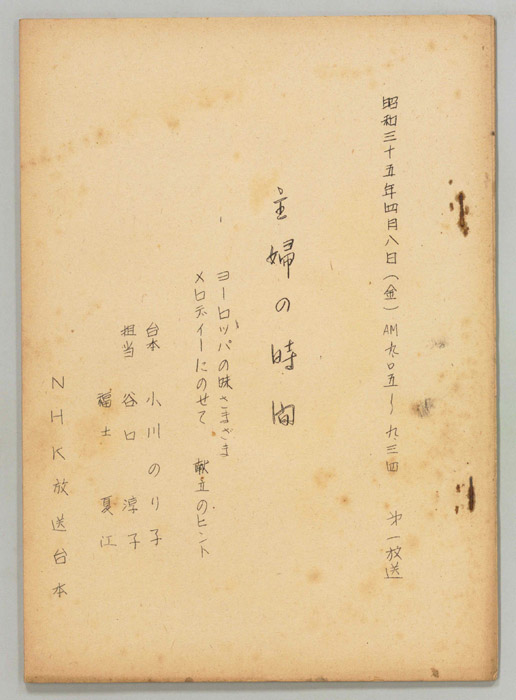 昭和三十五年四月八日（金）AM九.〇五〜九.三四　第一放送
主婦の時間
ヨーロッパの味さまざま
メロディーにのせて　献立のヒント
台本　小川のり子
担当　谷口淳子
福士夏江
NHK放送台本